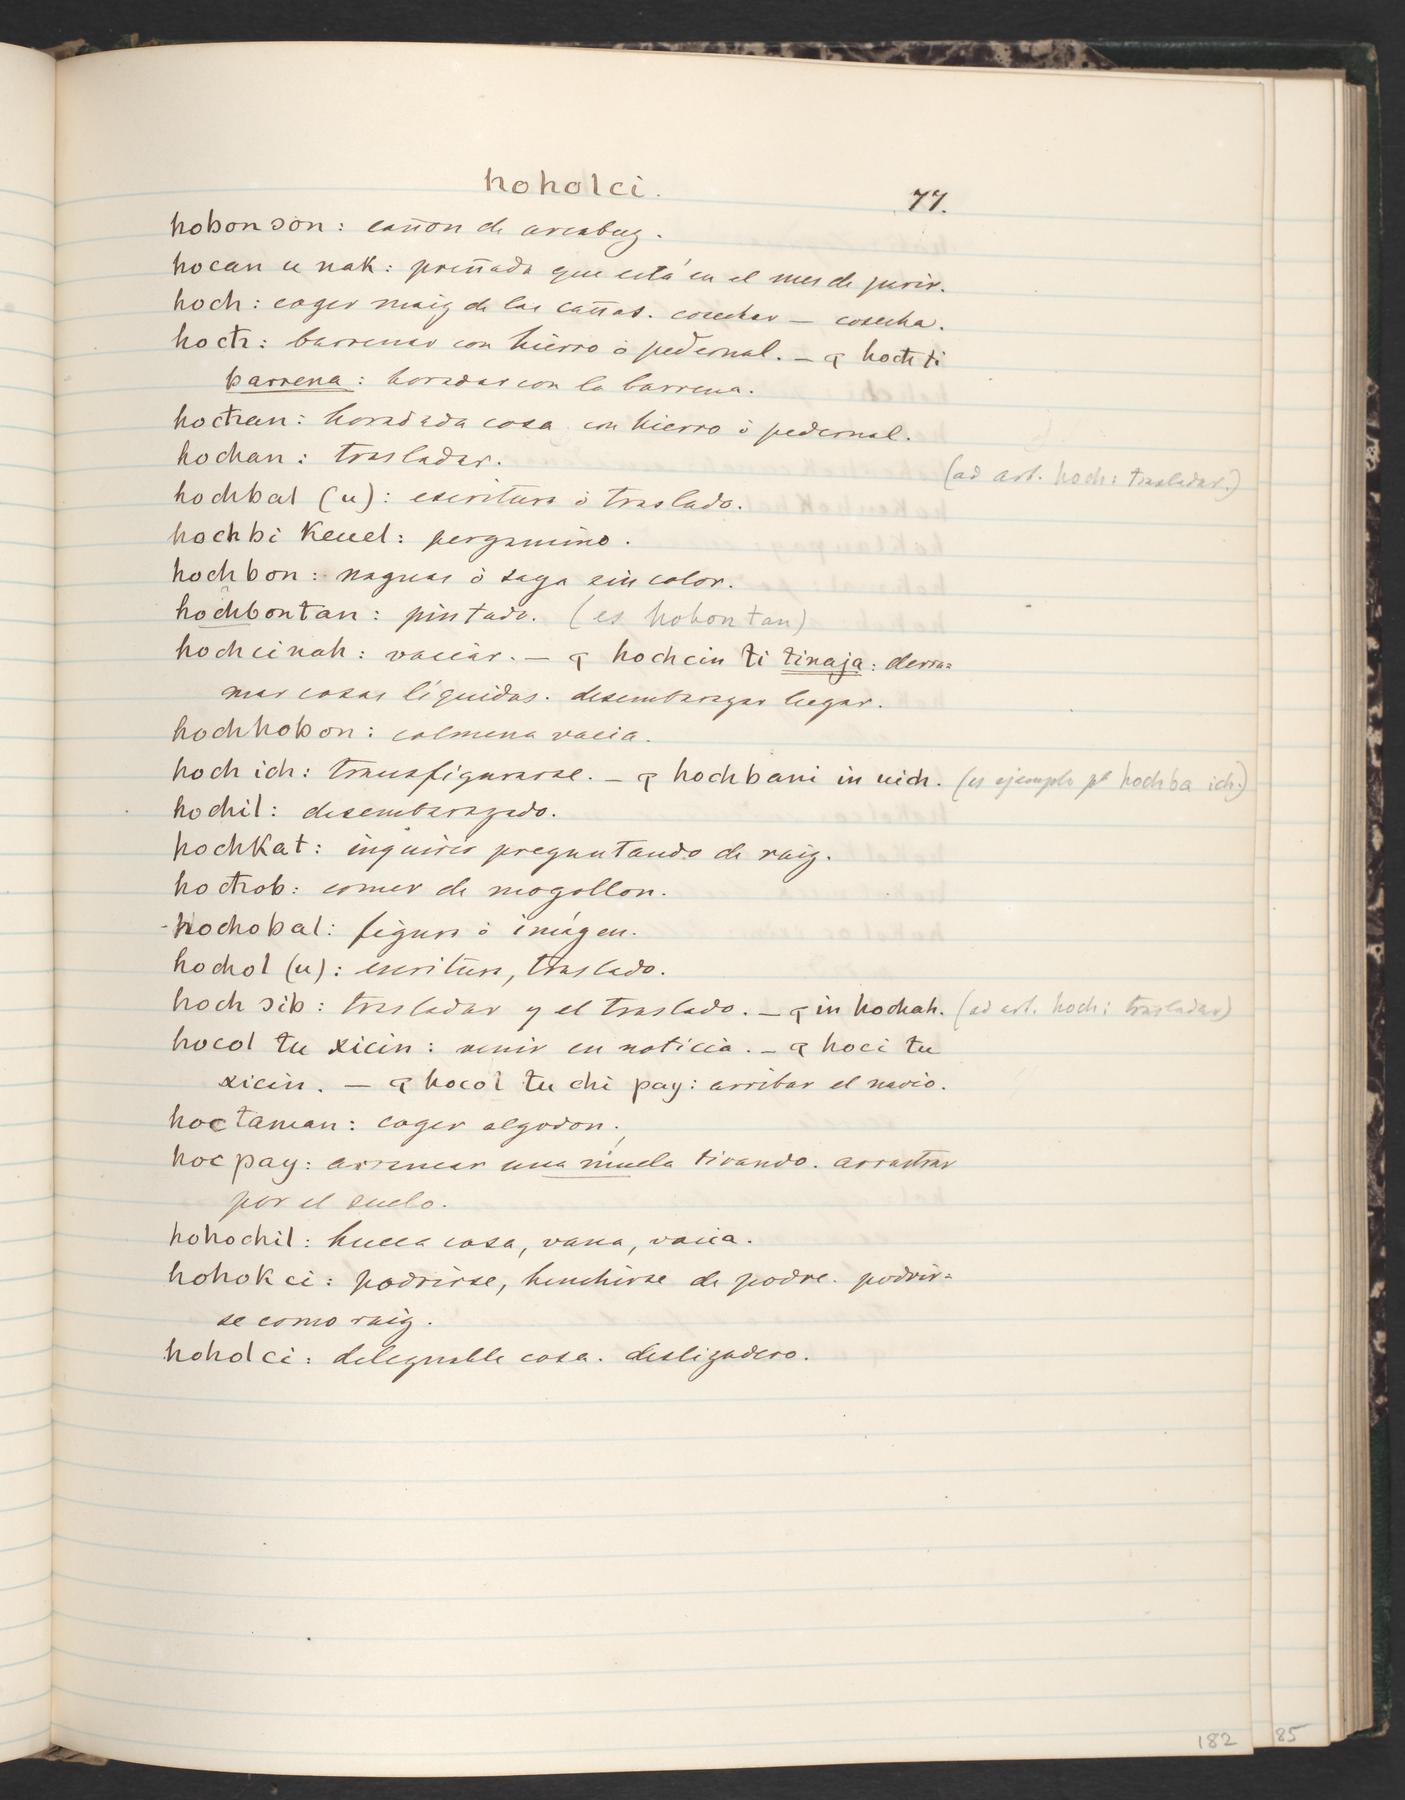 hoholci.
77.
hobon ɔon: cañon de arcabuz.
hocan u nak: preñada que está en el mes de parir.
hoch: coger maiz de las cañas. cosechar — cosecha.
hocħ: barrenar con hierro ò pedernal. — ¶ hocħ ti
barrena: horadar con la barrena.
hocħan: horadada cosa con hierro ò pedernal.
hochan: trasladar.
(ad art. hoch: trasladar.)
hochbal (u): escritura ò traslado.
hochbi keuel: pergamino.
hochbon: naguas ò saya sin color.
hochbontan: pintado. (es hobon tan)
hochcinah: vaciàr. — ¶ hochcin ti tinaja: derra=
mar cosas líquidas. desembarazar lugar.
hochhobon: colmena vacia.
hoch ich: transfigurarse. — ¶ hochbani in uich. (es ejemplo pª hochba ich.)
hochil: desembarazado.
hochkat: inquirir preguntando de raiz.
hocħob: comer de mogollon.
-hochobal: figura ò imágen.
hochol (u): escritura, traslado.
hoch ɔib: trasladar y el traslado. — ¶ in hochah. (ad art. hoch: trasladar)
hocol tu xicin: venir en noticia. — ¶ hoci tu
xicin. — ¶ hocol tu chi pay: arribar el navio.
hoctaman: coger algodon.
hoc pay: arrancar una muela tirando. arrastrar
por el suelo.
hohochil: hueca cosa, vana, vacia.
hohokci: podrirse, henchirse de podre. podrir=
se como raiz.
hoholci: deleznable cosa. deslizadero.
182
85